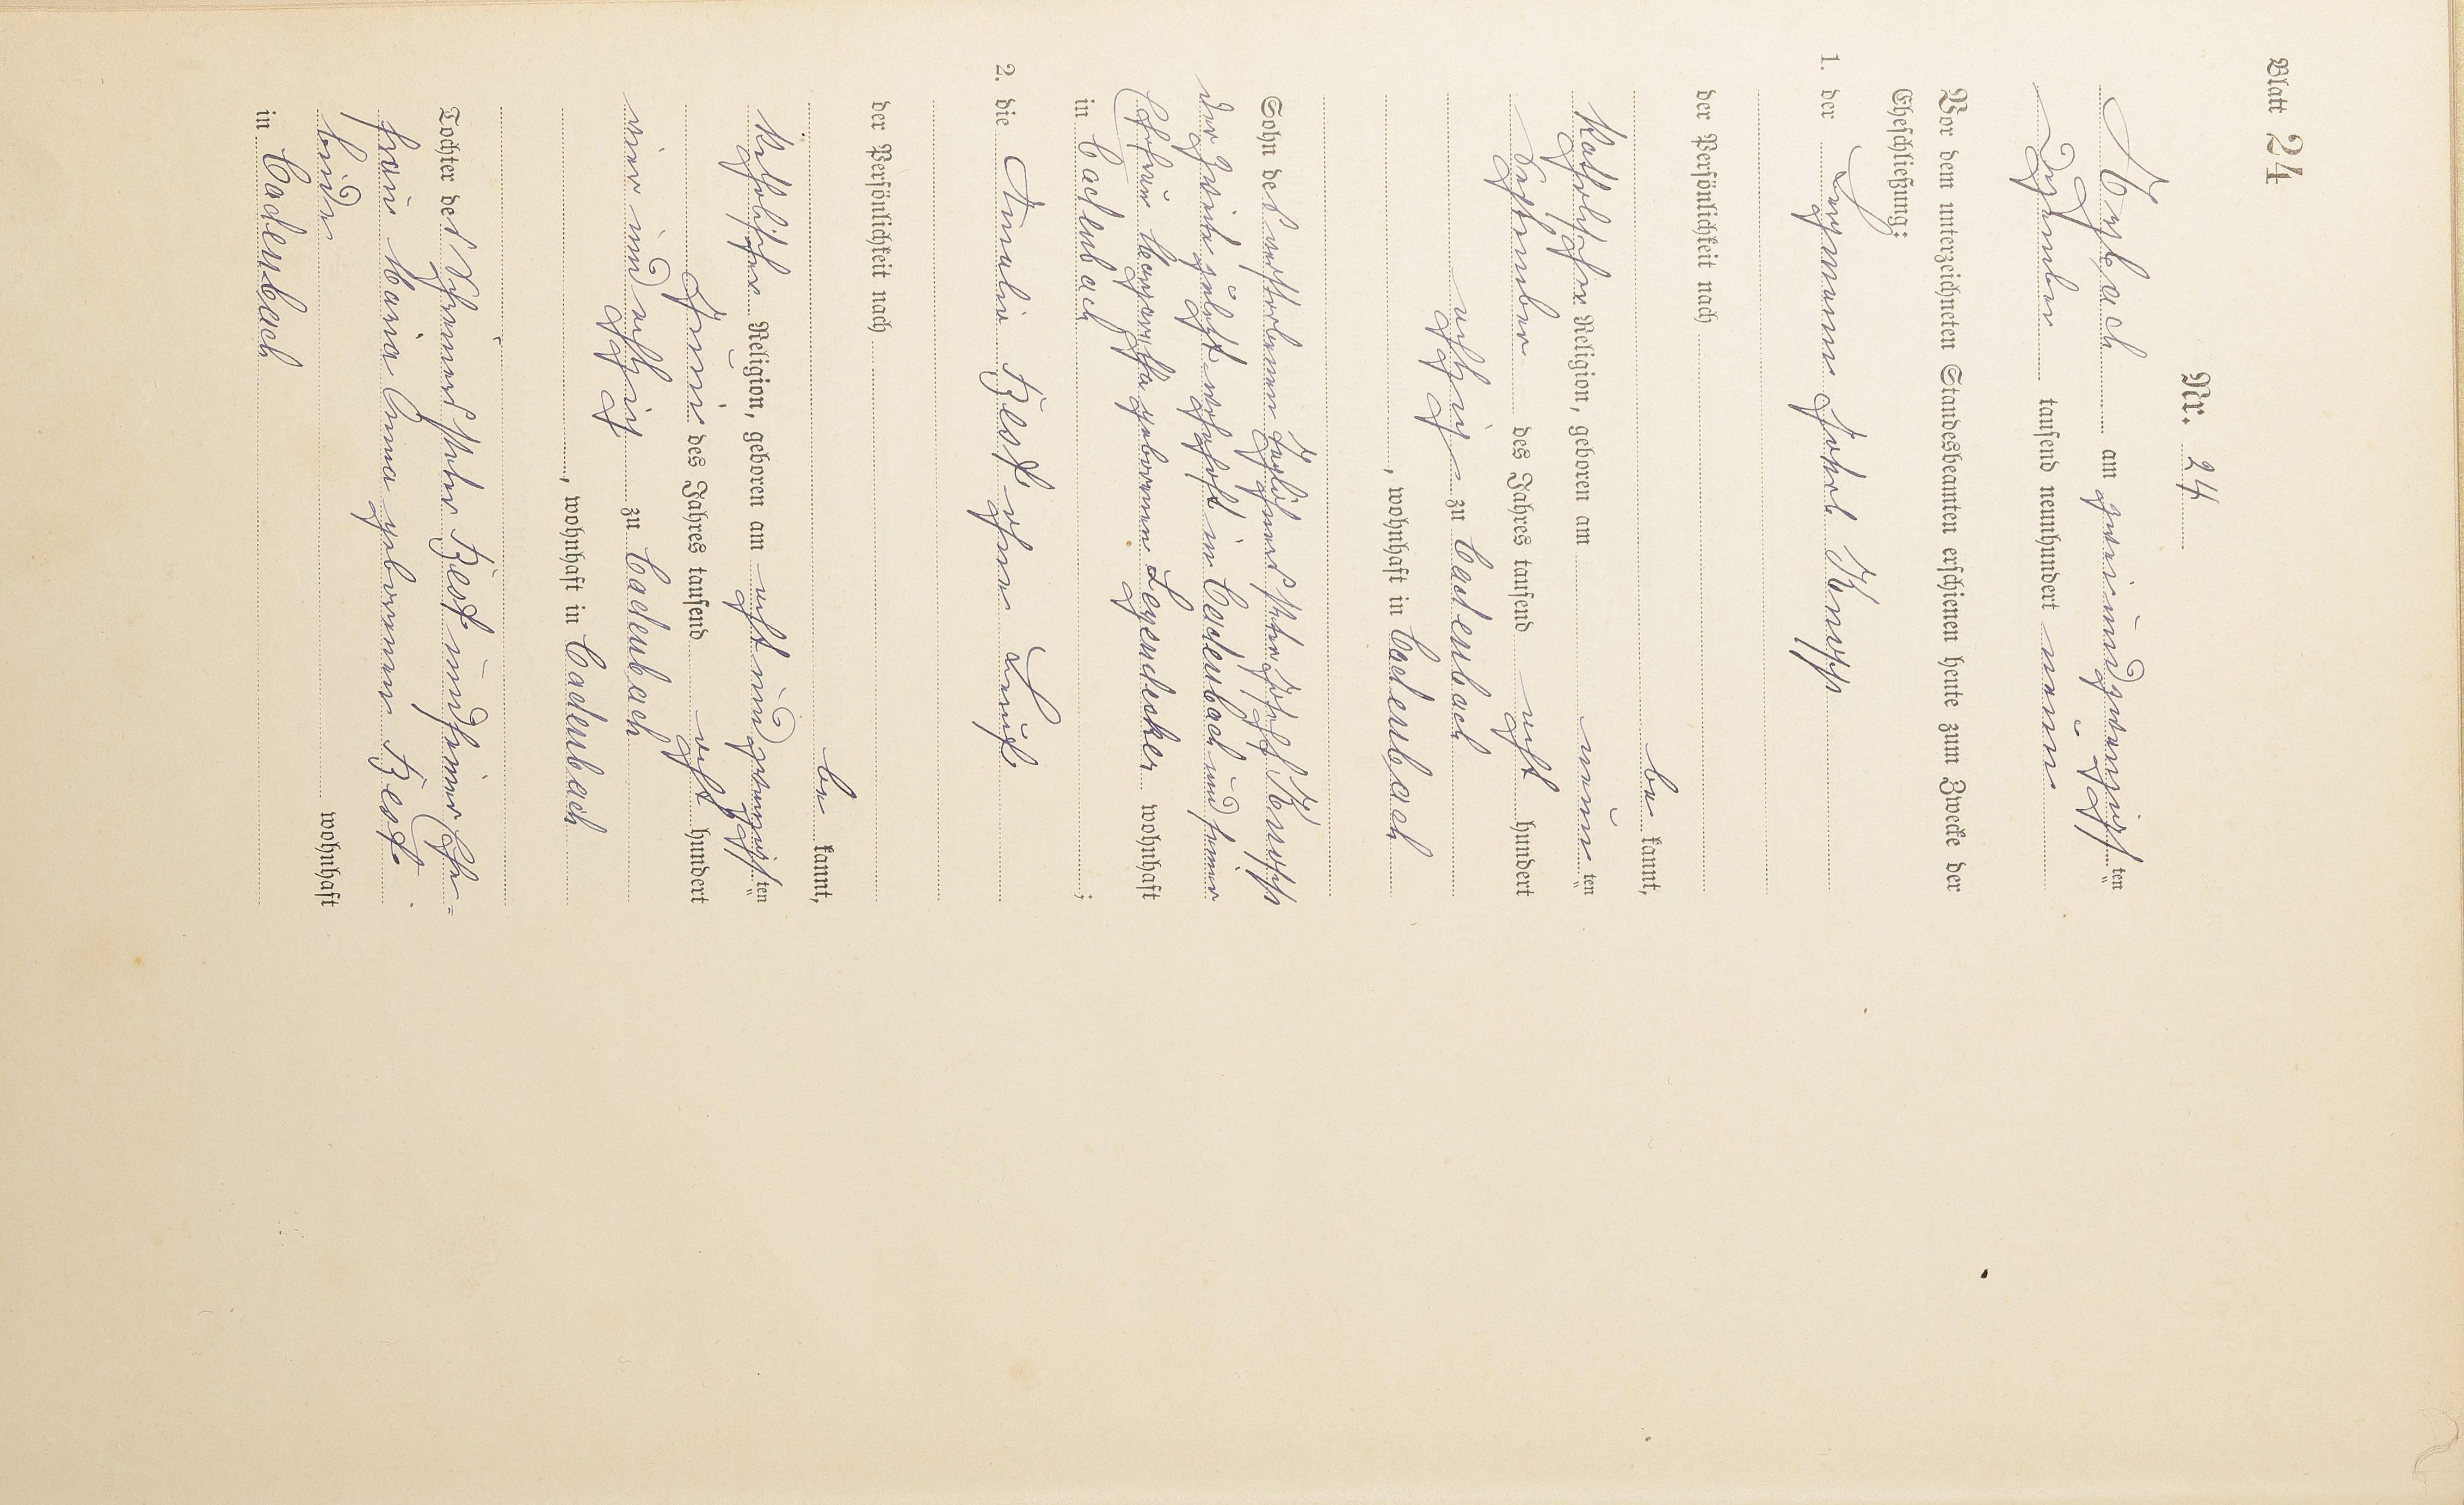 Blatt 24
Nr. 24
Arzbach am zweiundzwanzigsten
Dezember tausend neunhundert neun
Vor dem unterzeichneten Standesbeamten erschienen heute zum Zwecke der
Eheschließung:
1. der Bergmann Jakob Knopp
der Persönlichkeit nach
be kannt,
katholischer Religion, geboren am neunten
September des Jahres tausend acht hundert
achtzig zu Cadenbach
, wohnhaft in Cadenbach
Sohn des verstorbenen Taglöhners Peter Joseph Knopp
der Zweite zuletzt wohnhaft in Cadenbach und seiner
Ehefrau Margaretha geborenen Legendecker wohnhaft
in Cadenbach ;
2. die Amalie Best ohne Beruf
der Persönlichkeit nach
be kannt,
katholischer Religion, geboren am acht und zwanzigsten
Juni des Jahres tausend acht hundert
vier und achtzig zu Cadenbach
, wohnhaft in Cadenbach
Tochter des Peter Best und seiner Ehe=
frau Maria Anna geborenen Best
beide wohnhaft
in Cadenbach